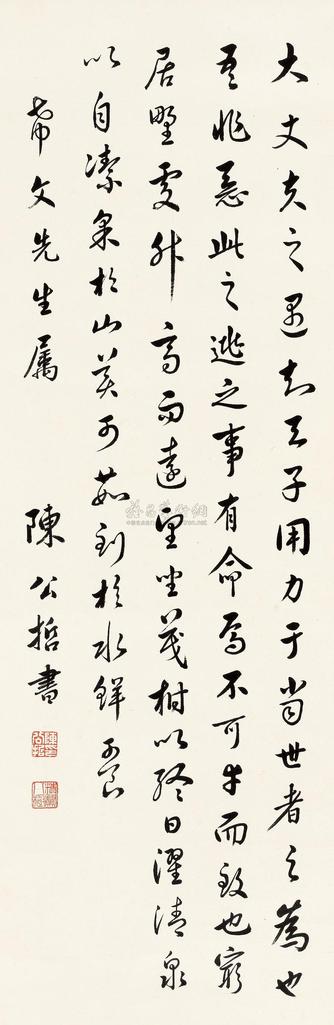 大丈夫之遇知天子用力于当世者之為也
吾非惡此之逃之事有命焉不可幸而致也窮
居野處升高而遠望坐茂樹以終日濯清泉
以自潔采於山美可茹釣於水鮮可食
希文先生属
陳公哲書